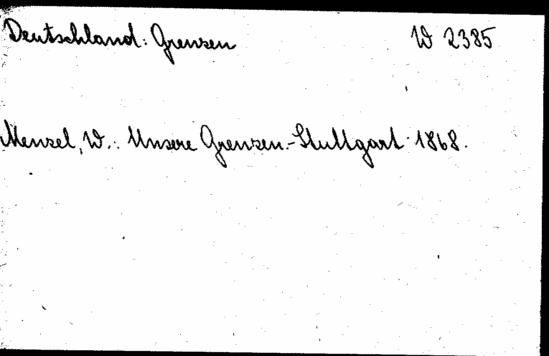 Deutschland: Grenzen W 2385
Menzel, W.: Unsere Grenzen.-Stuttgart 1868.